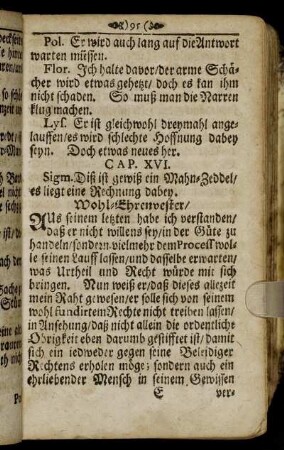 91
Pol. Er wird auch lang auf die Antwort
warten müssen.
Flor. Ich halte davor/ der arme Schä-
cher wird etwas gehetzt/ doch es kan ihm
nicht schaden. So muß man die Narren
klug machen.
Lys. Er ist gleichwohl dreymahl ange-
lauffen/ es wird schlechte Hoffnung dabey
seyn. Doch etwas neues her.
CAP. XVI.
Sigm. Diß ist gewiß ein Mahn-Zeddel/
es liegt eine Rechnung dabey.
Wohl-Ehrenvester/
AUs seinem letzten habe ich verstanden/
daß er nicht willens sey/ in der Güte zu
handeln/ sondern vielmehr dem Process wol-
le seinen Lauff lassen/ und dasselbe erwarten/
was Urtheil und Recht würde mit sich
bringen. Nun weiß er/ daß dieses allezeit
mein Raht gewesen/ er solle sich von seinem
wohl fundirtem Rechte nicht treiben lassen/
in Ansehung/ daß nicht allein die ordentliche
Obrigkeit eben darumb gestifftet ist/ damit
sich ein iedweder gegen seine Beleidiger
Rechtens erholen möge; sondern auch ein
ehrliebender Mensch in seinem Gewissen
E ver-